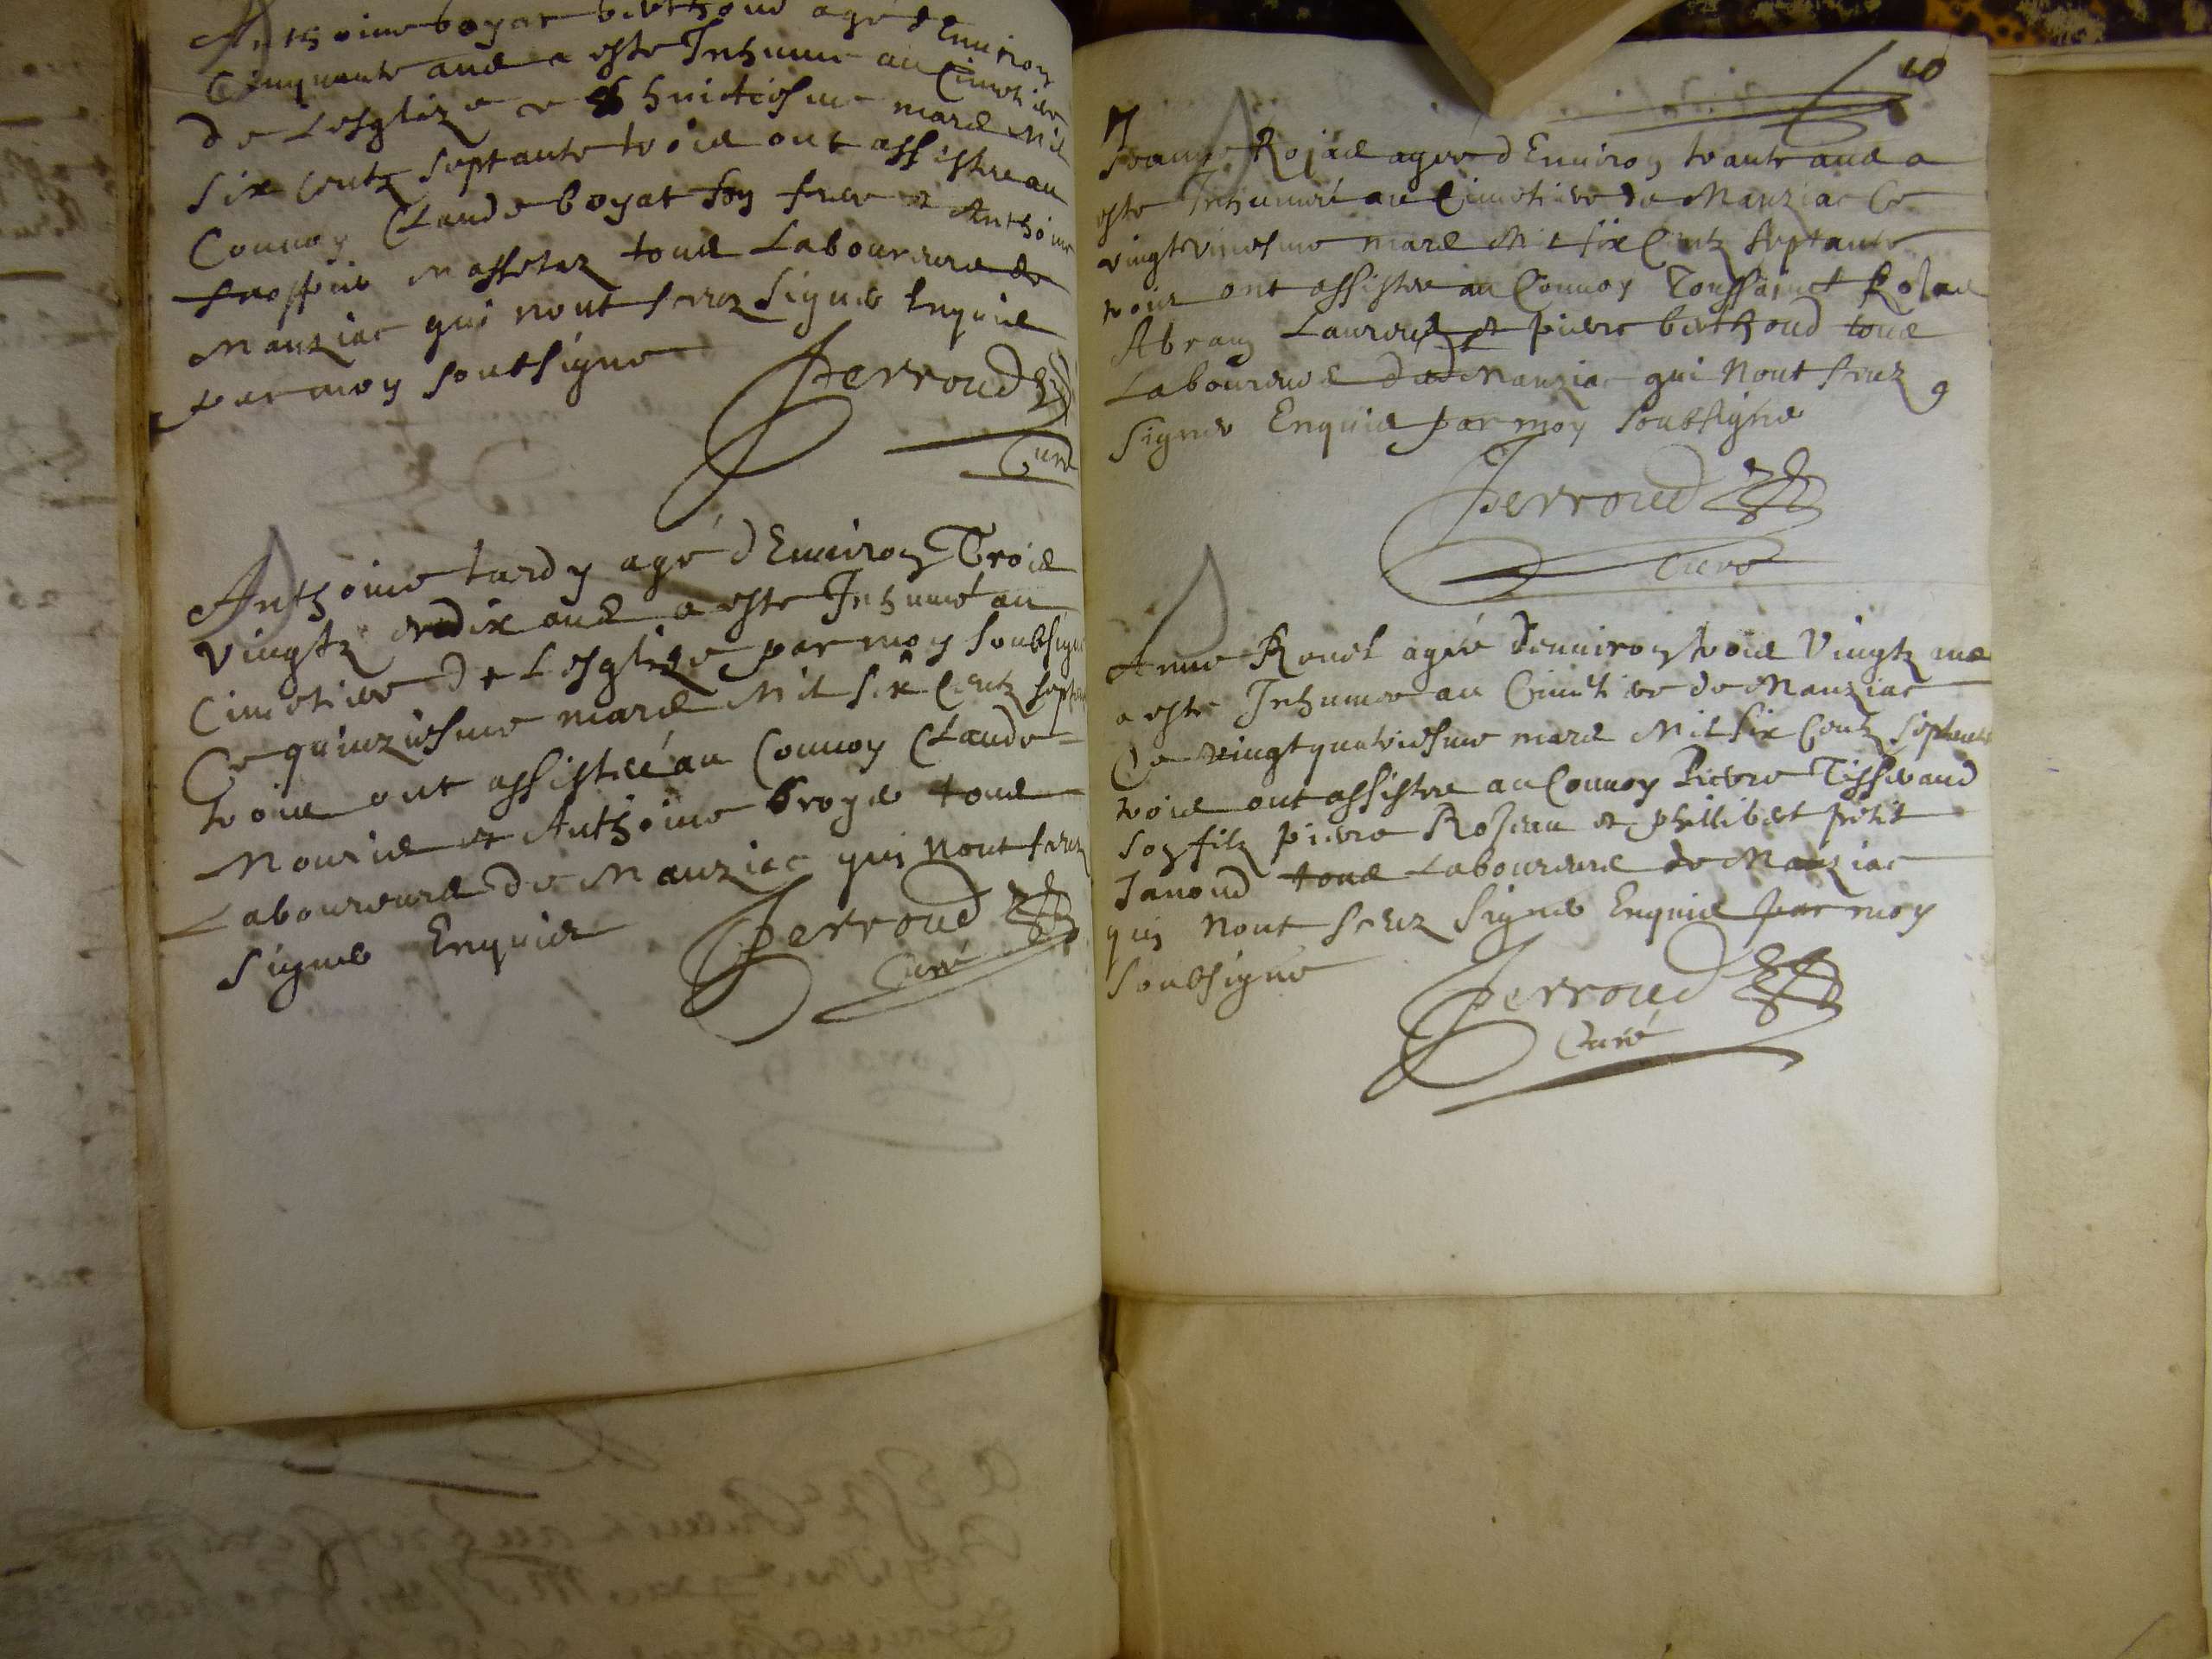 Anthoine boyat berthoud agé d Environ
Cinquante ans a esté Inhumé au Cimetiere
de Lesglize ce huictiesme mars Mil
six centz septante trois ont assistre au
Connoy Claude boyat son frere et Anthoine
massetez tous Laboureurs de
Manziac qui nont sceuz signer Enquis
par moy soubsigné
Perroud
Curé
Anthoine tardy agé d Environ Trois
vingtz et dix ans a esté Inhumé au
Cimetiere de Lesglize par moy soubsigné
Ce quinziesme mars Mil six Centz septante
trois ont assistré au Connoy Claude
et Anthoine broyer tous
Laboureurs de Manziac qui nont sceuz
signer Enquis
Perroud
Curé
10
Jeanne Rojas agée d Environ trante ans a
esté Inhumée au Cimetiere de Manziac Ce
vingt mars Mil six Centz septante
trois ont assistre au Connoy Toussainct Rojas
Abram Laurens et pierre berthoud tous
Laboureurs dud Manziac qui Nont sceuz
signer Enquis par moy soubsigné
Perroud
Curé
Anne Renost agée denviron trois Vingtz ans
a esté Inhumee au Cimetiere de Manziac
Ce vingt quatriesme mars Mil six Centz septante
trois ont assistre au Connoy Pierre Tisserand
son filz pierre et phillibert petit
Janoud tous Laboureurs de Manziac
qui Nont sceuz signer Enquis par moy
soubsigné
Perroud
Curé